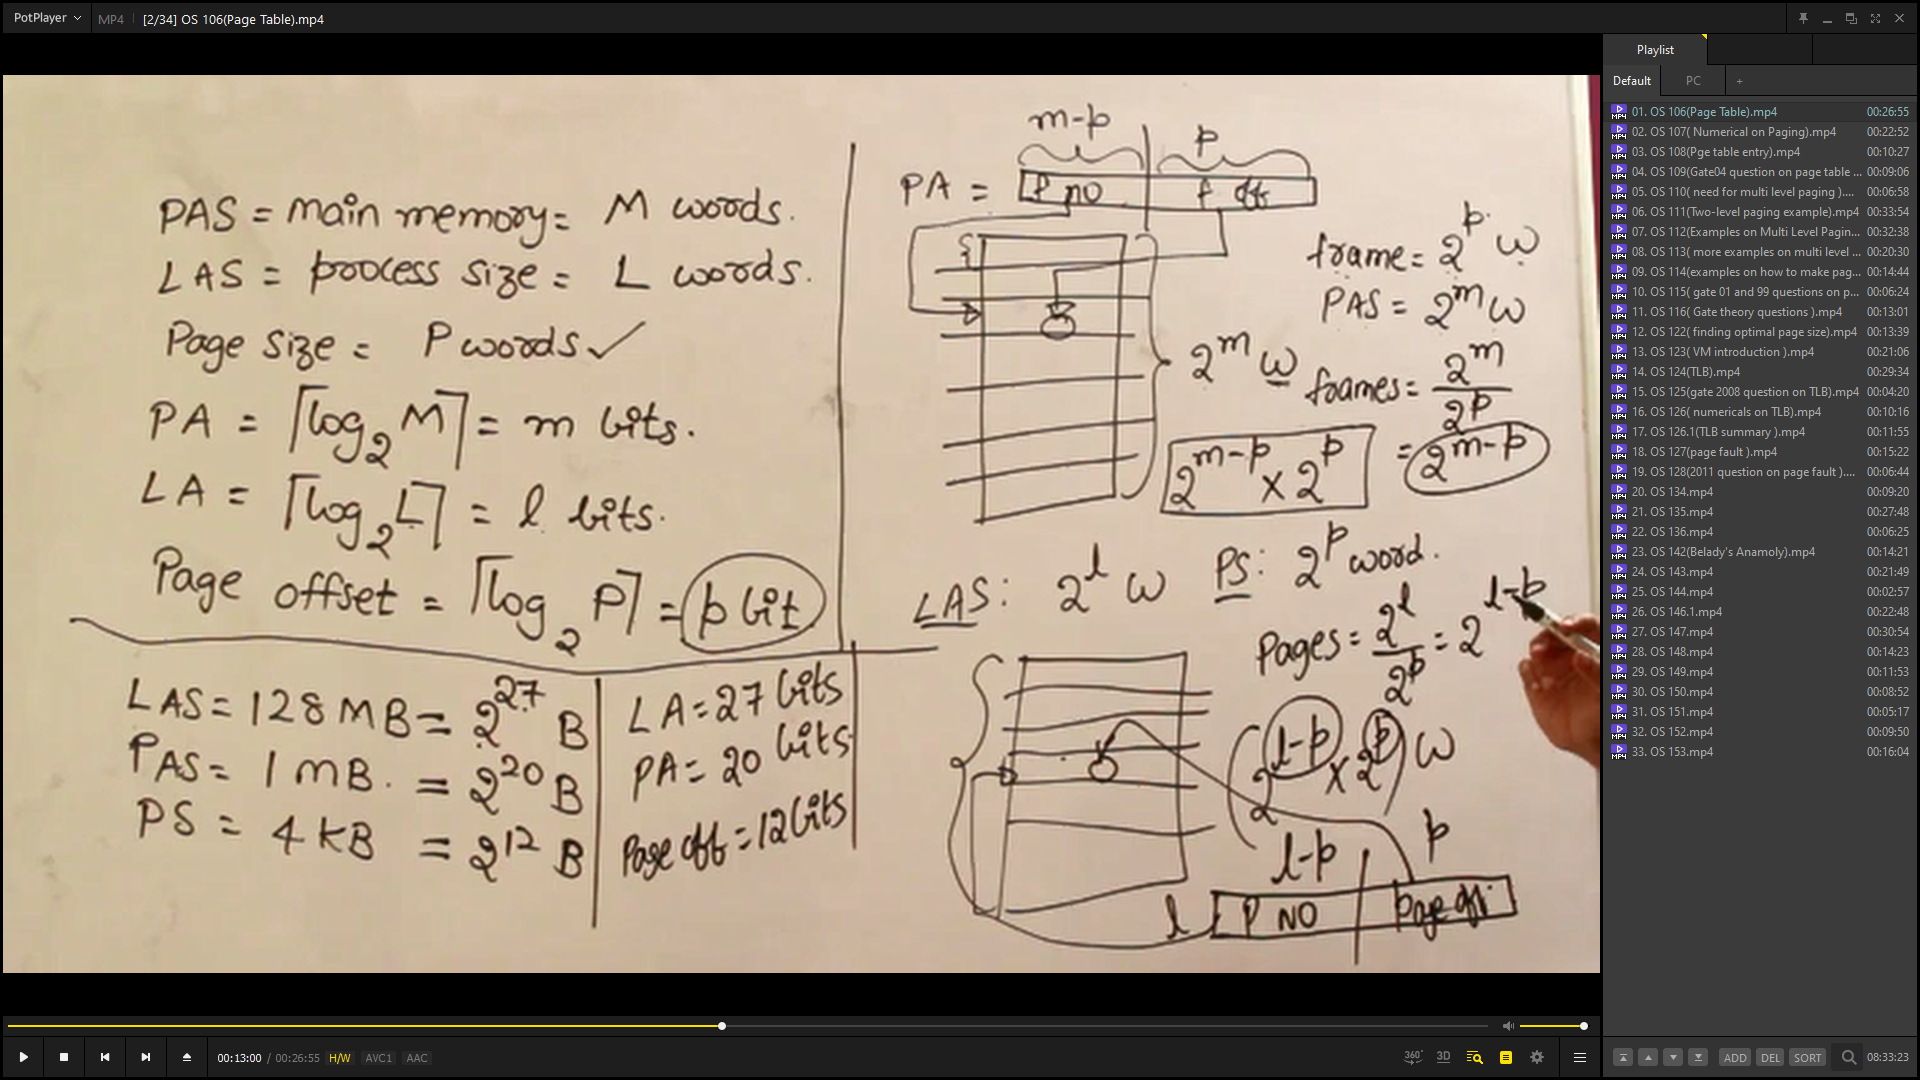 PotPlayer
MP4
[2/34] OS 106(Page Table).mp4
PAS = main memory = M words.
LAS = process size = L words.
Page size = P words ✓
PA = ⌈log₂ M⌉ = m bits.
LA = ⌈log₂ L⌉ = l bits.
Page offset = ⌈log₂ P⌉ = p bit
LAS = 128 MB = 2^27 B
PAS = 1 MB. = 2^20 B
PS = 4 KB = 2^12 B
LA = 27 bits
PA = 20 bits
Page off = 12 bits
m-p
p
PA =
f off
frame = 2^p w
PAS = 2^m w
2^m w
frames = 2^m / 2^p
2^(m-p) × 2^p
= 2^(m-p)
LAS: 2^l w
PS: 2^p word.
Pages = 2^l / 2^p = 2^(l-p)
(2^(l-p) × 2^p) w
l-p
p
l
P NO
Page off
Playlist
Default
PC
+
01. OS 106(Page Table).mp4 00:26:55
02. OS 107( Numerical on Paging).mp4 00:22:52
03. OS 108(Pge table entry).mp4 00:10:27
04. OS 109(Gate04 question on page table ... 00:09:06
05. OS 110( need for multi level paging ).... 00:06:58
06. OS 111(Two-level paging example).mp4 00:33:54
07. OS 112(Examples on Multi Level Pagin... 00:32:38
08. OS 113( more examples on multi level ... 00:20:30
09. OS 114(examples on how to make pag... 00:14:44
10. OS 115( gate 01 and 99 questions on p... 00:06:24
11. OS 116( Gate theory questions ).mp4 00:13:01
12. OS 122( finding optimal page size).mp4 00:13:39
13. OS 123( VM introduction ).mp4 00:21:06
14. OS 124(TLB).mp4 00:29:34
15. OS 125(gate 2008 question on TLB).mp4 00:04:20
16. OS 126( numericals on TLB).mp4 00:10:16
17. OS 126.1(TLB summary ).mp4 00:11:55
18. OS 127(page fault ).mp4 00:15:22
19. OS 128(2011 question on page fault ).... 00:06:44
20. OS 134.mp4 00:09:20
21. OS 135.mp4 00:27:48
22. OS 136.mp4 00:06:25
23. OS 142(Belady's Anamoly).mp4 00:14:21
24. OS 143.mp4 00:21:49
25. OS 144.mp4 00:02:57
26. OS 146.1.mp4 00:22:48
27. OS 147.mp4 00:30:54
28. OS 148.mp4 00:14:23
29. OS 149.mp4 00:11:53
30. OS 150.mp4 00:08:52
31. OS 151.mp4 00:05:17
32. OS 152.mp4 00:09:50
33. OS 153.mp4 00:16:04
00:13:00 / 00:26:55 H/W AVC1 AAC
360°
3D
ADD
DEL
SORT
08:33:23